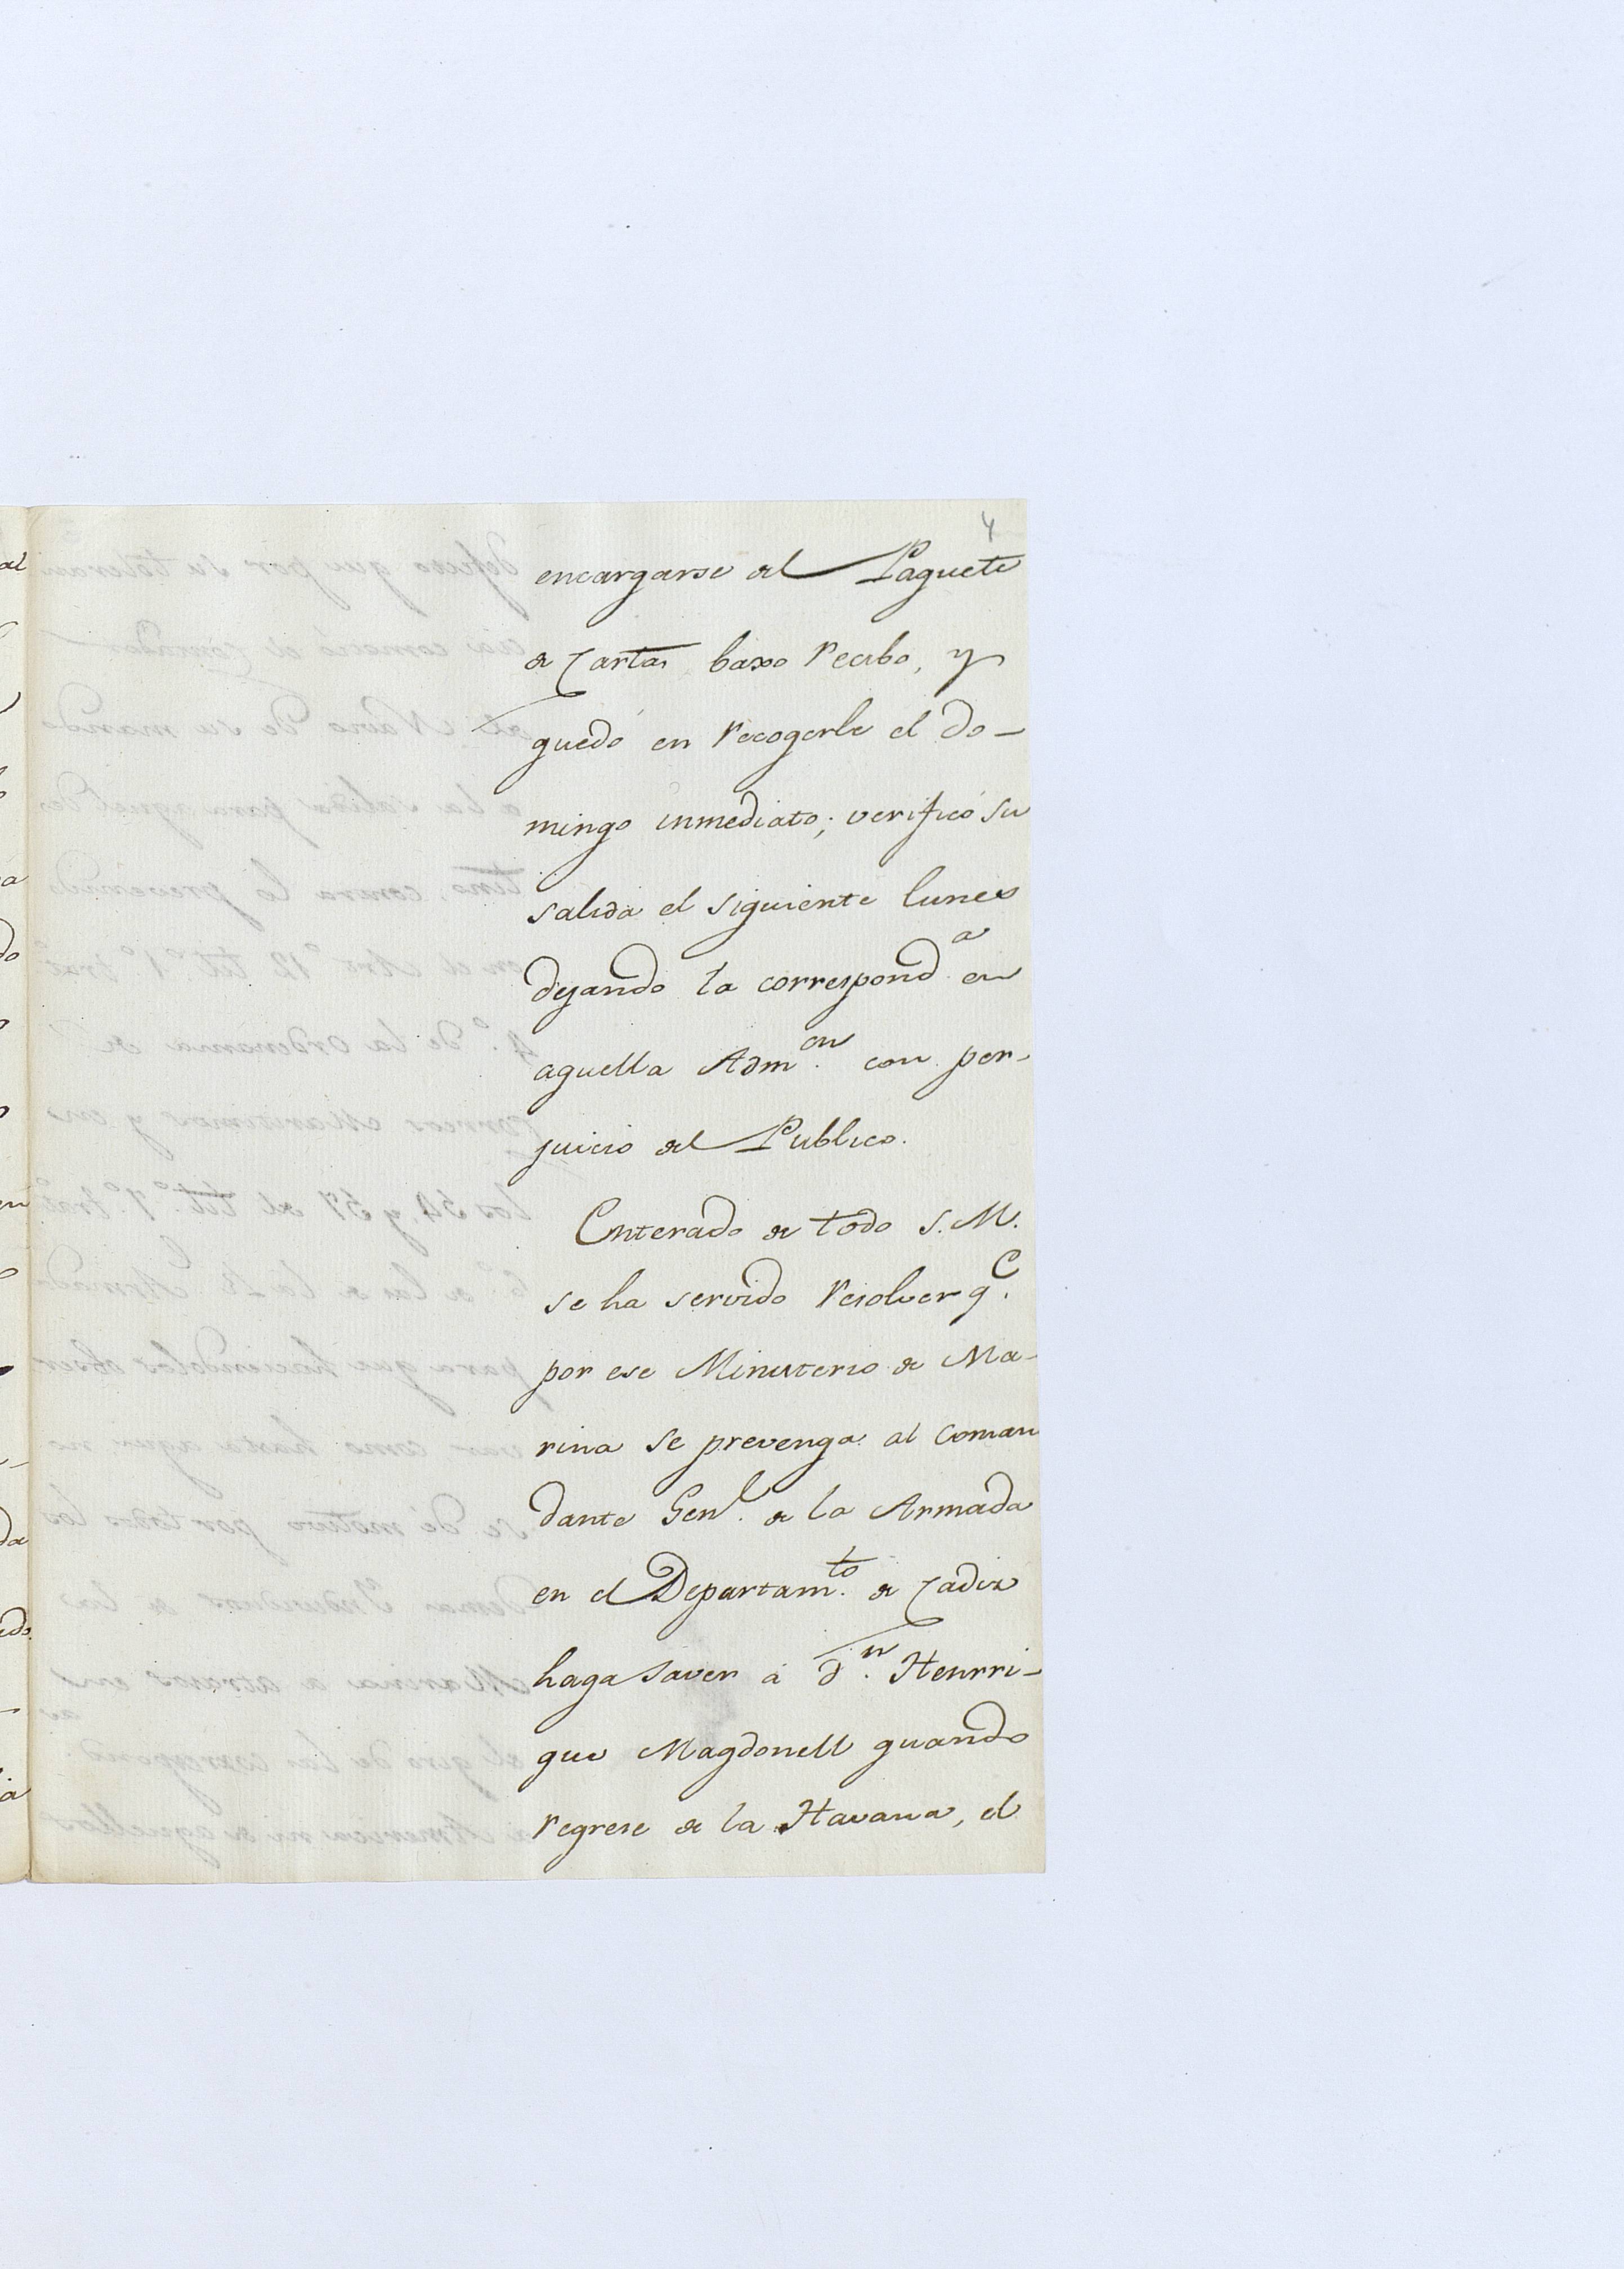 4
encargarse del Paquete
de Cartas baxo recibo, y
quedó en recogerle el do-
mingo inmediato; verificó su
salida el siguiente lunes
dejando la correspond.ª en
aquella Adm.on con per-
juicio del Publico.
Enterado de todo S. M.
se ha servido resolver q.e
por ese Ministerio de Ma-
rina se prevenga al Coman
dante Gen.l de la Armada
en el Departam.to de Cadiz
haga saver á d.n Henrri-
que Magdonell quando
regrese de la Havana, el